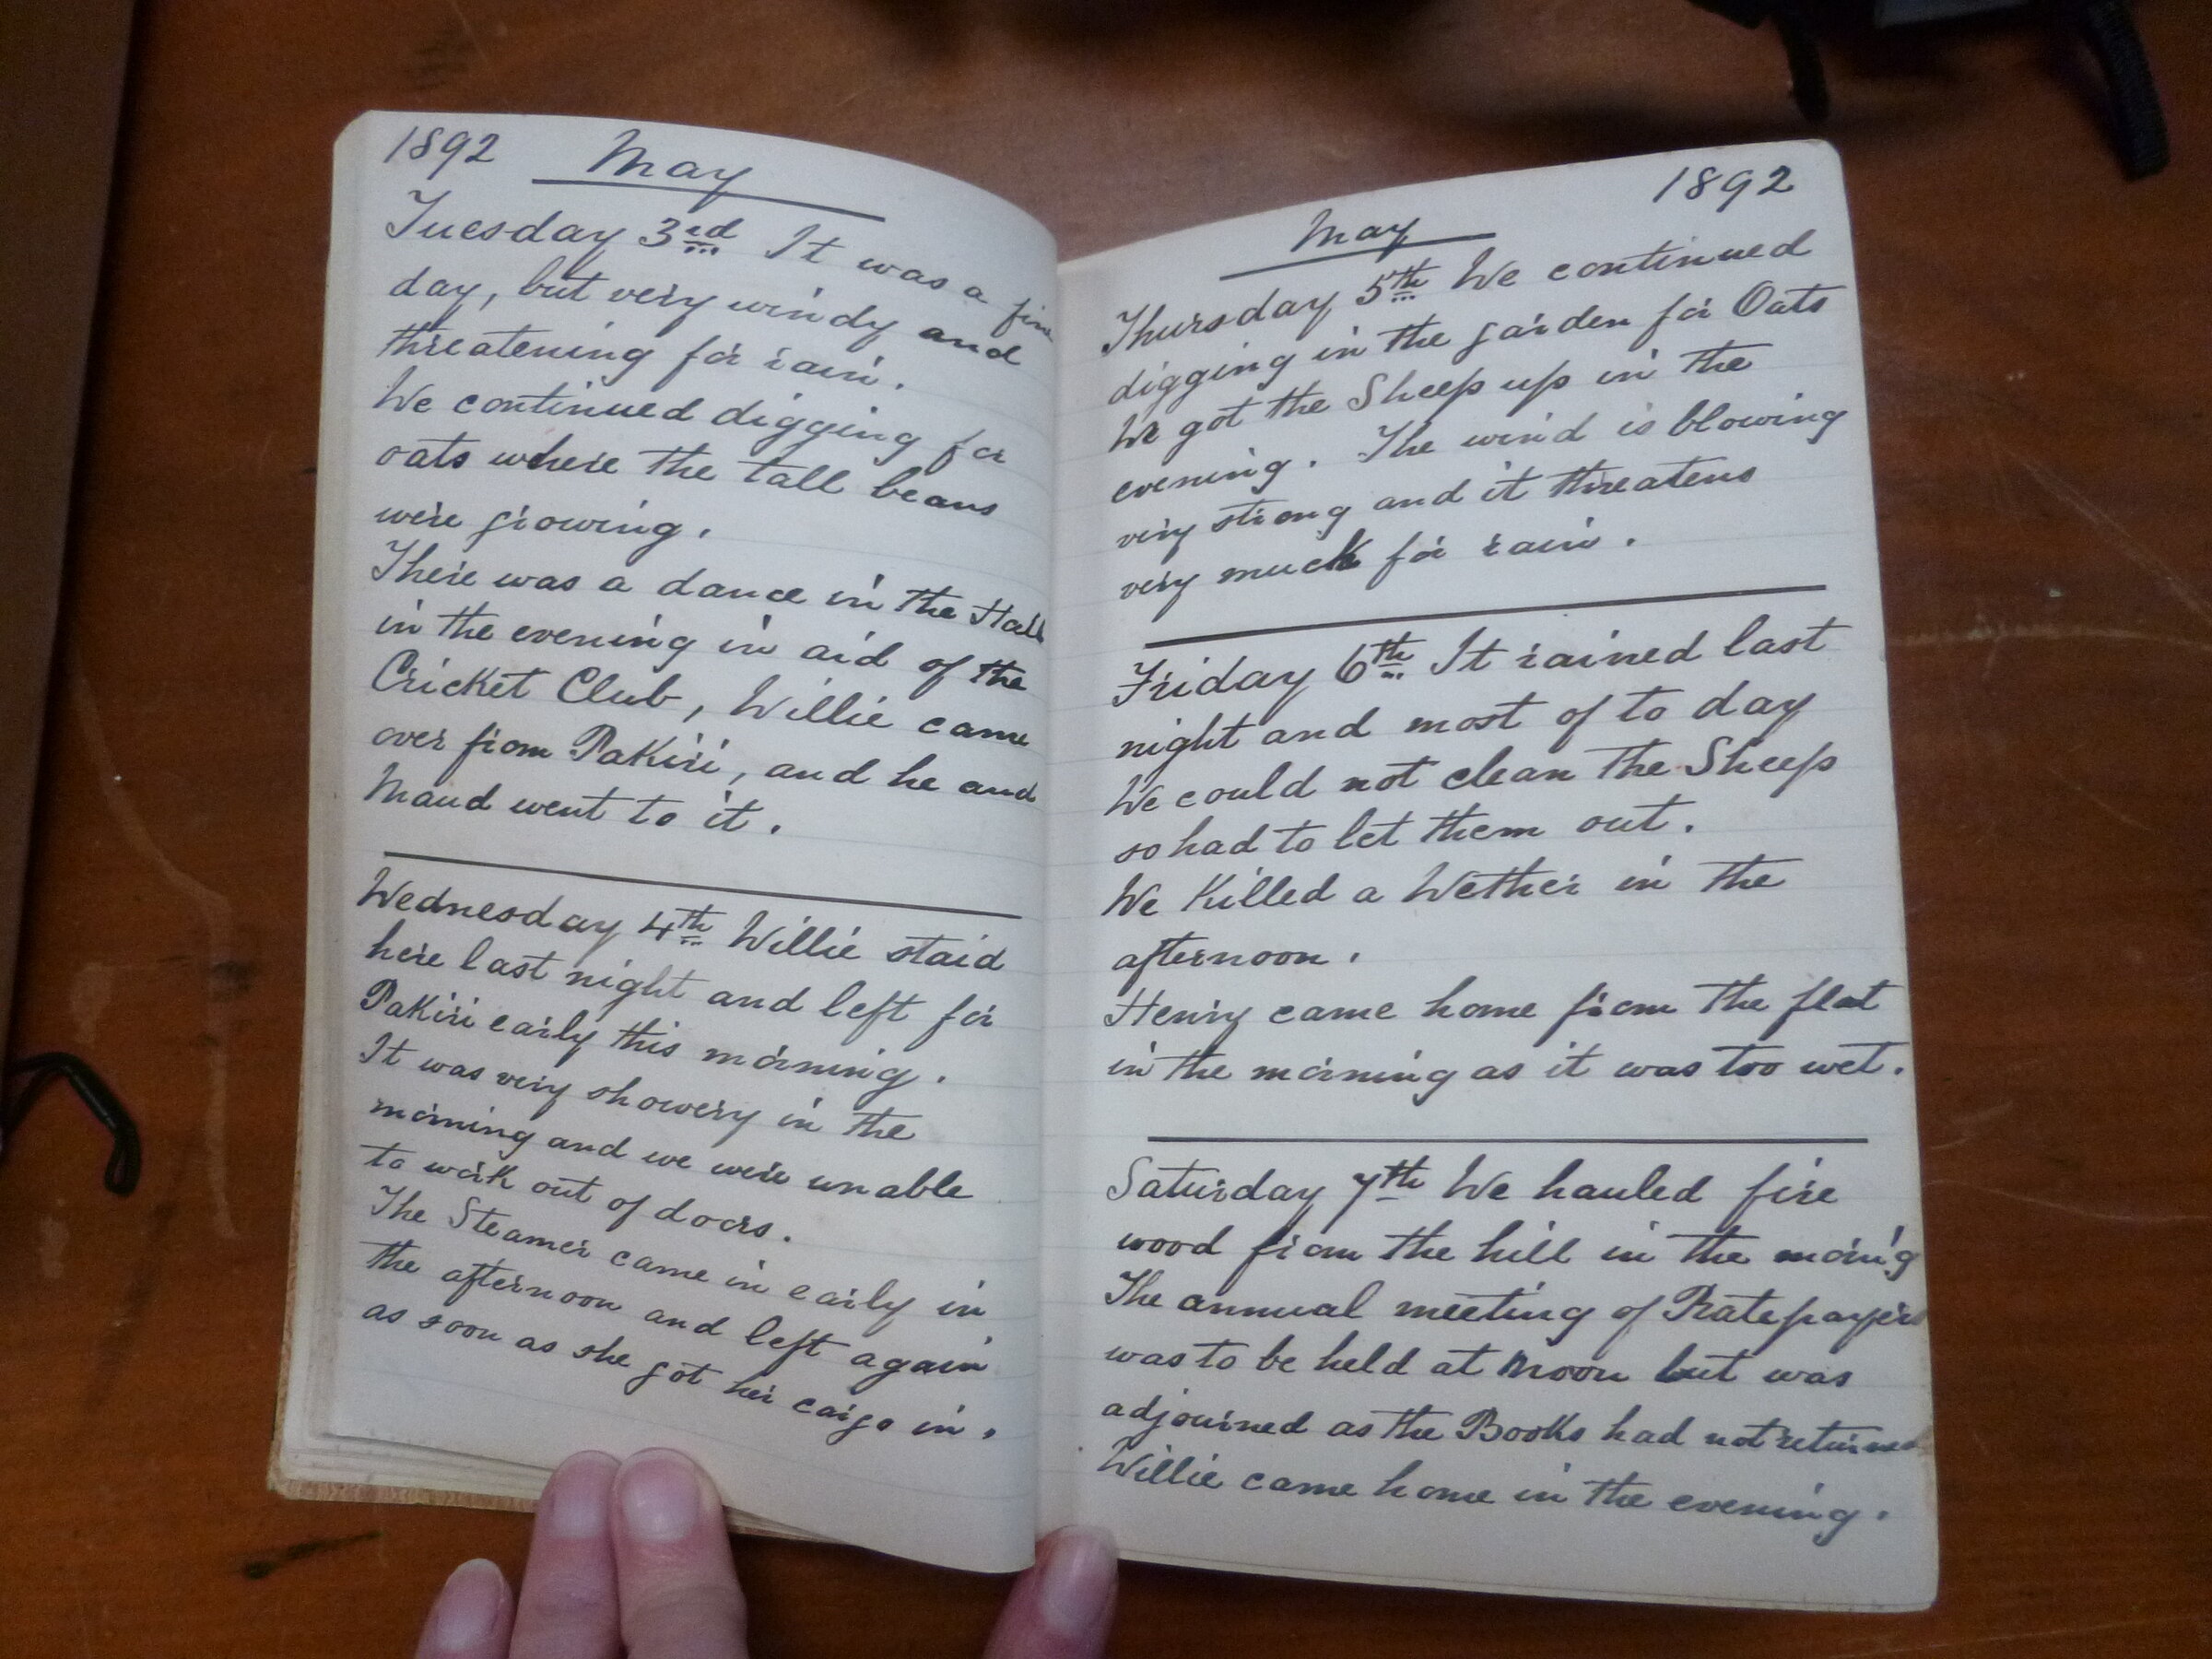 1892 May
Tuesday 3rd It was a fine
day, but very windy and
threatening for rain.
We continued digging for
oats where the tall beans
were growing.
There was a dance in the Hall
in the evening in aid of the
Cricket Club, Willie came
over from Pakiri, and he and
Maud went to it.
Wednesday 4th Willie staid
here last night and left for
Pakiri early this morning.
It was very showery in the
morning and we were unable
to work out of doors.
The Steamer came in early in
the afternoon and left again
as soon as she got her cargo in.
1892
May
Thursday 5th We continued
digging in the garden for Oats
We got the Sheep up in the
evening. The wind is blowing
very strong and it threatens
very much for rain.
Friday 6th It rained last
night and most of to day
We could not clean the Sheep
so had to let them out.
We Killed a Wether in the
afternoon.
Henry came home from the flat
in the morning as it was too wet.
Saturday 7th We hauled fire
wood from the hill in the morn'g
The annual meeting of Ratepayers
was to be held at noon but was
adjourned as the Books had not returned
Willie came home in the evening.